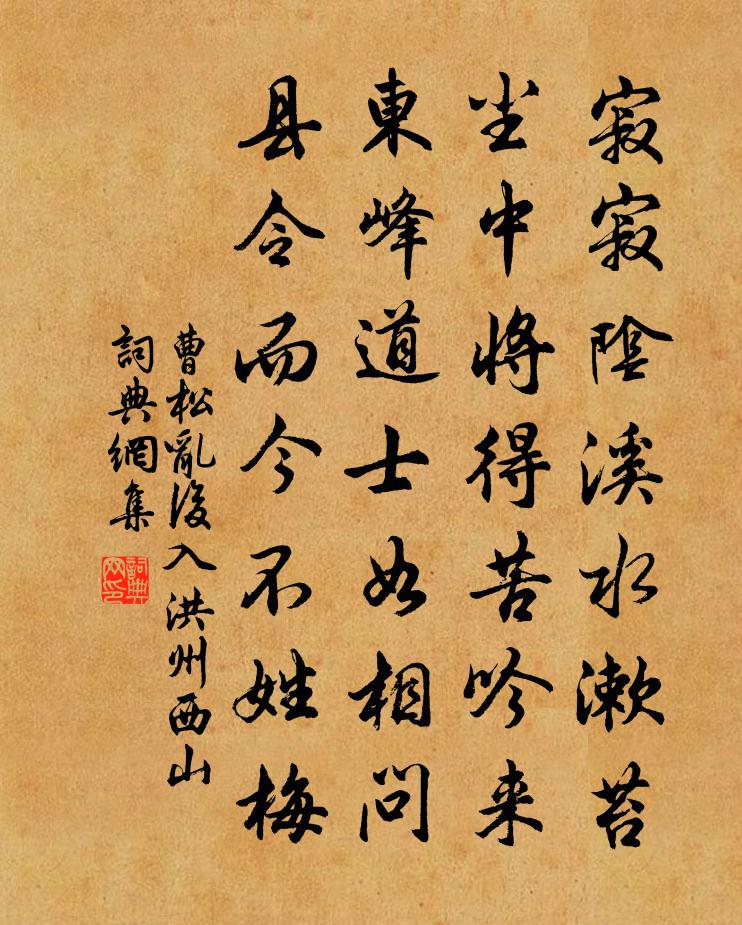 寂寂陰溪水漱苔
尘中將得苦吟来
東峰道士如相问
县令而今不姓梅
曹松亂後入洪州西山
詞典網集
詞典网印